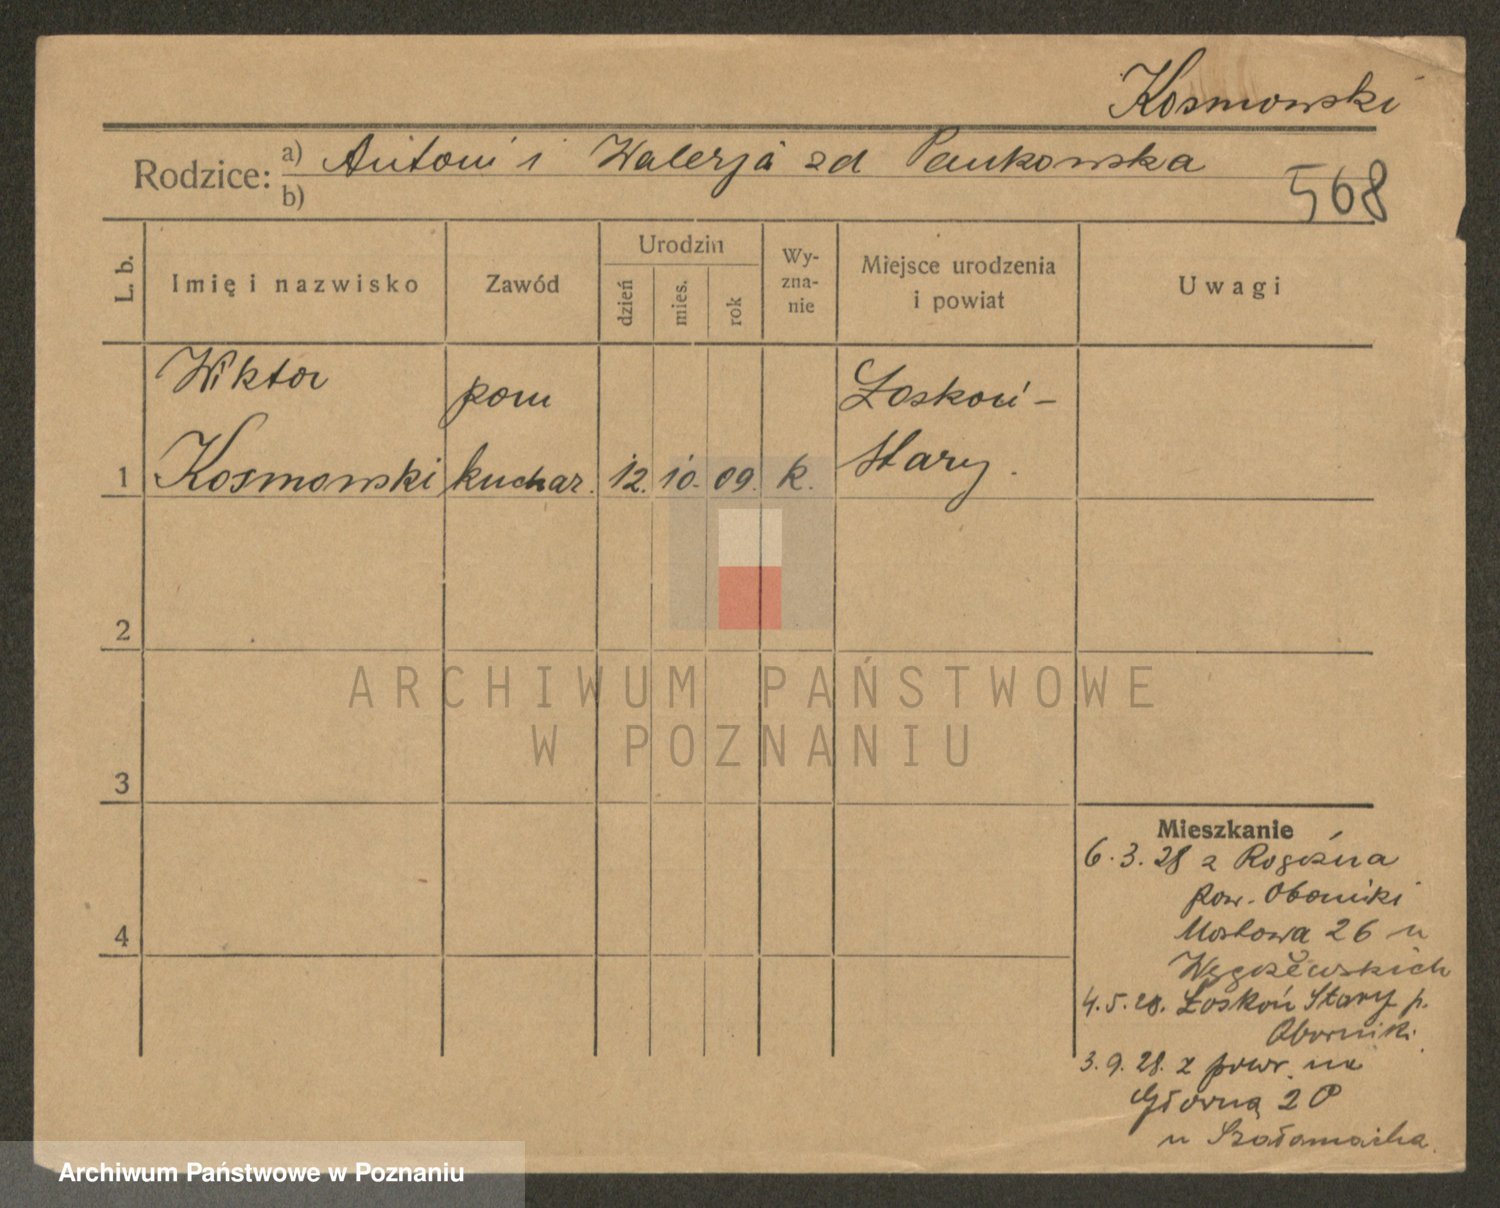 Kosmowski
Rodzice: a) Antoni i Walerja zd Pankowska
b)
568
L. b.
Imię i nazwisko
Zawód
Urodzin
dzień
mies.
rok
Wy-
zna-
nie
Miejsce urodzenia
i powiat
Uwagi
Wiktor
pom
Łoskoń-
1 Kosmowski kuchar. 12. 10. 09. k. Stary.
2
ARCHIWUM PAŃSTWOWE
W POZNANIU
3
Mieszkanie
6.3.28 z Rogoźna
pow. Oborniki
4
Mostowa 26 u
4.5.28. Łoskoń Stary p.
Oborniki.
3.9.28. z powr. na
Główną 2
u
Archiwum Państwowe w Poznaniu